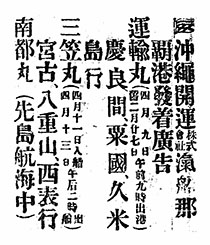 沖繩開運株式會社滊船那
覇港發着廣告
運輸丸四月九日午前九時出港
慶良間粟國久米
島行
三笠丸四月十一日入船
四月十三日午后二時出
宮古、八重山、西表行
南都丸(先島航海中)